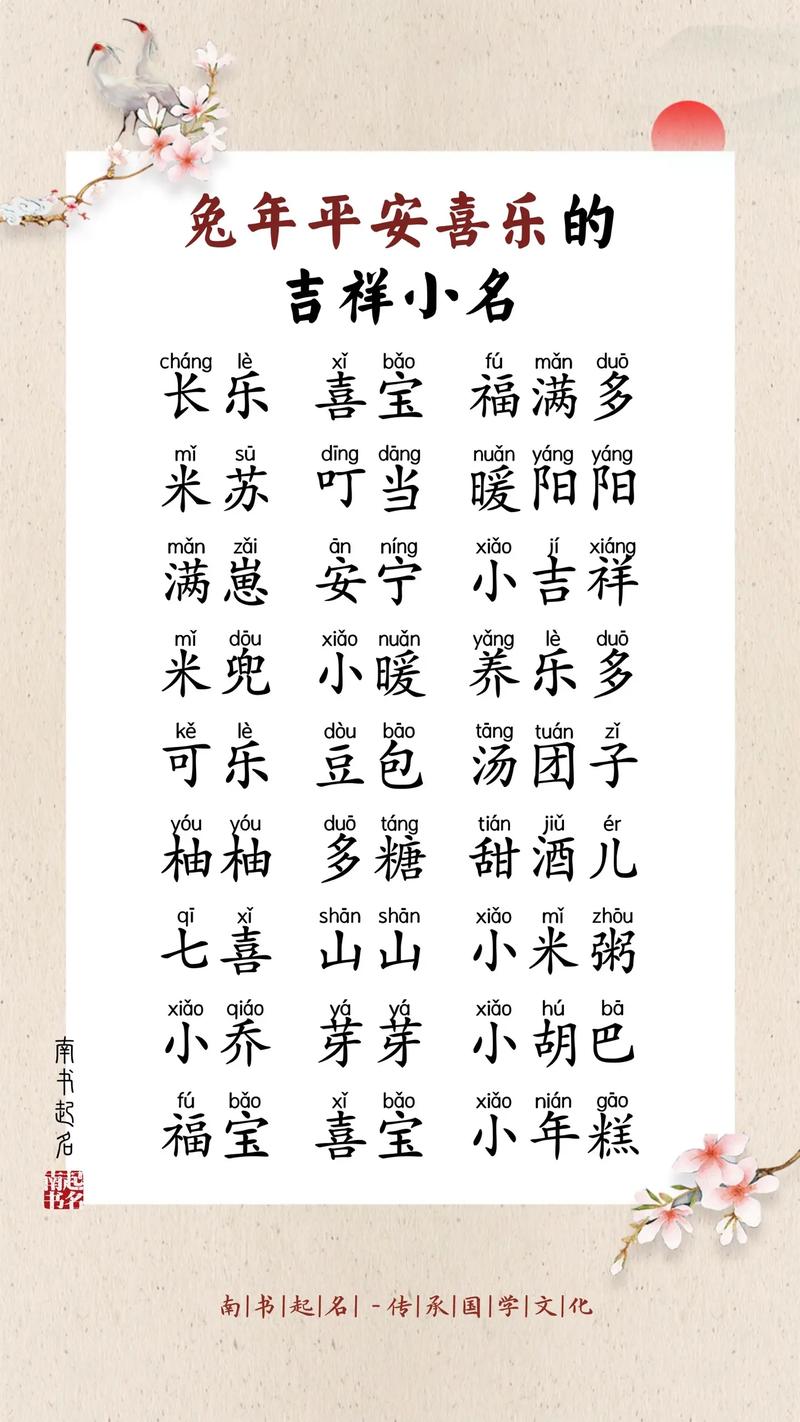 兔年平安喜乐的
吉祥小名
cháng lè xǐ bǎo fú mǎn duō
长乐 喜宝 福满多
mǐ sū dīng dāng nuǎn yáng yáng
米苏 叮当 暖阳阳
mǎn zǎi ān níng xiǎo jí xiáng
满崽 安宁 小吉祥
mǐ dōu xiǎo nuǎn yǎng lè duō
米兜 小暖 养乐多
kě lè dòu bāo tāng tuán zǐ
可乐 豆包 汤团子
yóu yóu duō táng tián jiǔ ér
柚柚 多糖 甜酒儿
qī xǐ shān shān xiǎo mǐ zhōu
七喜 山山 小米粥
xiǎo qiáo yá yá xiǎo hú bā
小乔 芽芽 小胡巴
fú bǎo xǐ bǎo xiǎo nián gāo
福宝 喜宝 小年糕
南书起名
南书起名
南|书|起|名|-传|承|国|学|文|化